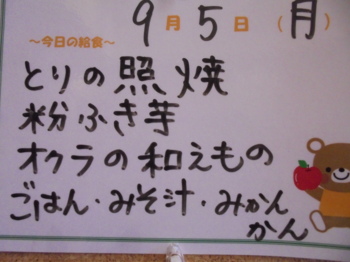 9月5日(月)
～今日の給食～
とりの照焼
粉ふき芋
オクラの和えもの
ごはん・みそ汁・みかん
かん